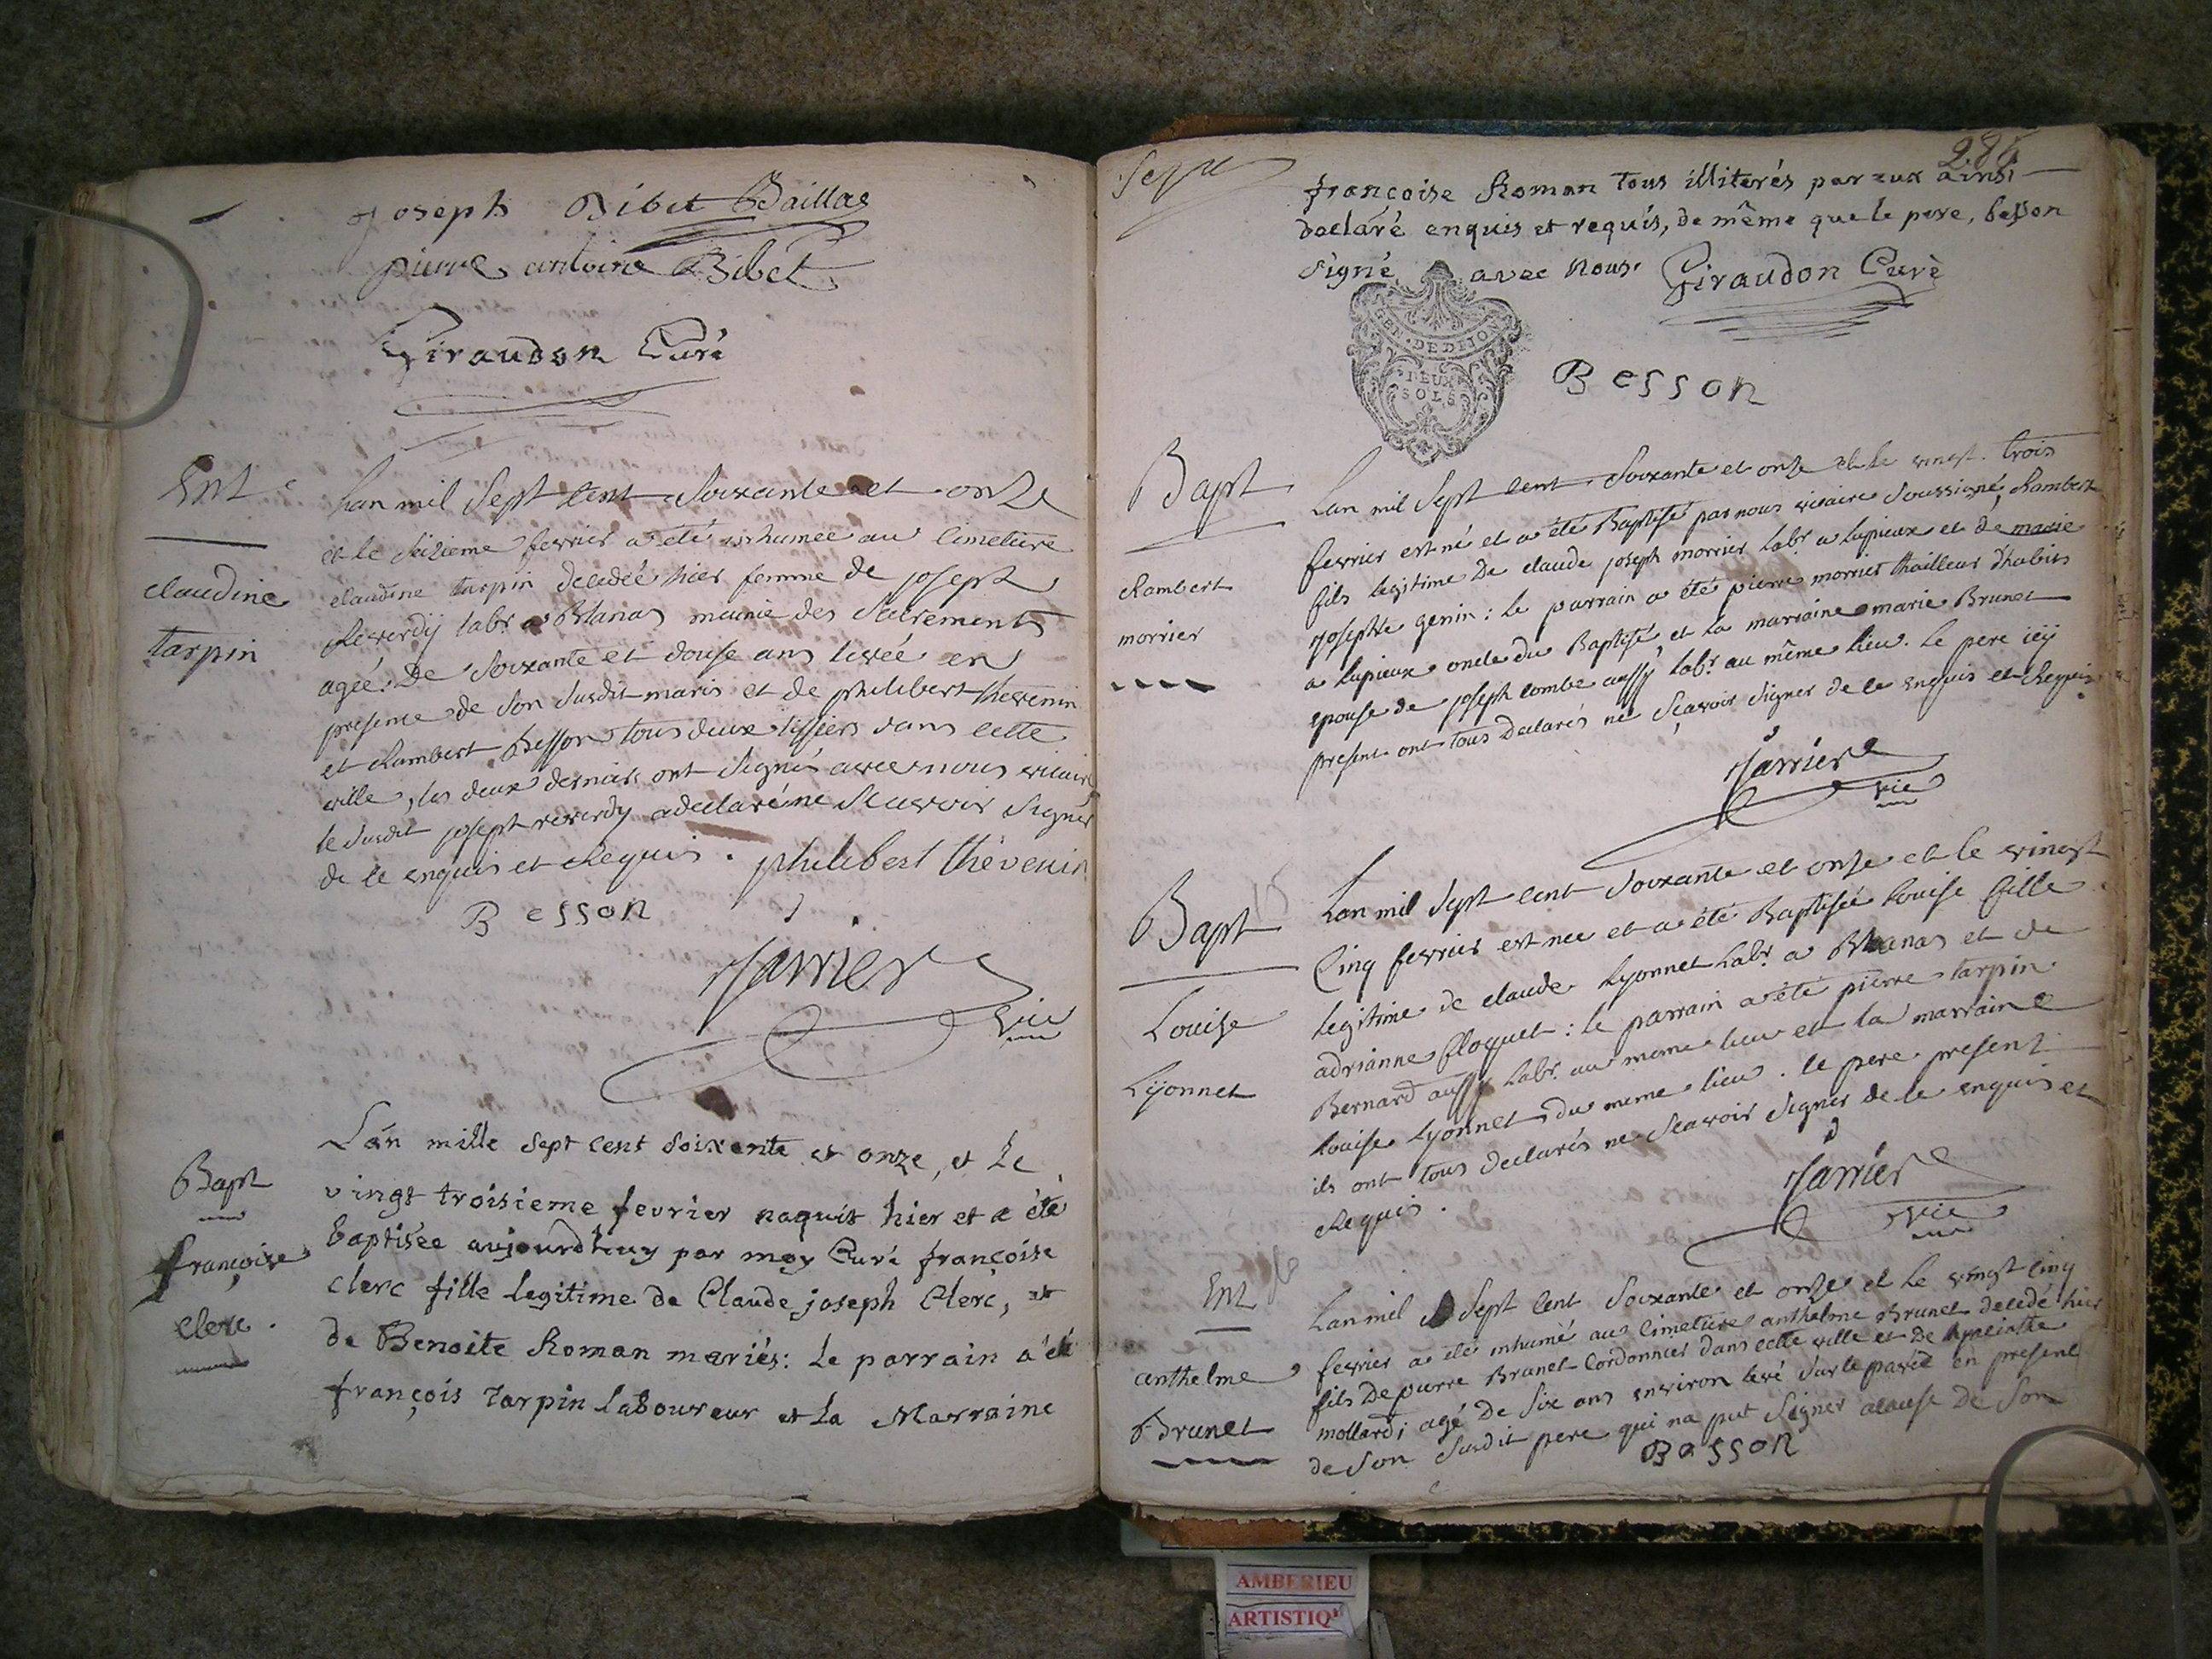 Joseph Bibet Baillas
pierre antoine Bibet
Giraudon Curé
Ent
claudine
tarpin
Lan mil Sept Cent Soixante et onze
et le seizieme fevrier a été inhumée au Cimetiere
claudine tarpin decedée hier femme de joseph
Reverdy labr a Blanas munie des Sacrements
agée De Soixante et douse ans levée en
presence de son Susdit maris et de philibert thevenin
et Rambert Besson tous deux tissiers dans cette
ville, les deux derniers ont Signés avec nous vicaire
le Susdit joseph reverdy a declaré ne Scavoir Signer
de ce enquis et Requis. philibert thévenin
Besson
Jarrier
vic
Bapt
françoise
clerc.
L'an mille sept cent soixante et onze, et le
vingt troisieme fevrier naquit hier et a été
baptisée aujourdhuy par moy Curé françoise
clerc fille legitime de Claude joseph Clerc, et
de Benoite Roman mariés: le parrain a été
françois Tarpin laboureur et la Marraine
286
françoise Roman tous illiterés par eux ainsi
declaré enquis et requis, de même que le pere, besson
signé avec nous. Giraudon Curé
GEN. DE DIJON
DEUX
SOLS
Besson
Bapt
Rambert
morrier
Lan mil Sept Cent Soixante et onze et le vingt trois
fevrier est né et a été Baptisé par nous vicaire Soussigné, Rambert
fils legitime De claude joseph morrier labr a lupieux et de marie
josephte genin: le parrain a été pierre morrier thailleur dhabits
a lupieux oncle du Baptisé, et la marraine marie Brunet
epouse de joseph combe aussy labr au même lieu. le pere icy
present ont tous declarés ne Sçavoir Signer de ce enquis et Requis
Jarrier
vic
Bapt
Louise
Lyonnet
Lan mil Sept Cent Soixante et onze et le vingt
Cinq fevrier est nee et a été Baptisée Louise fille
legitime de claude Lyonnet Labr a Blanas et de
adrianne floquet: le parrain a été pierre tarpin
Bernard aussy Labr au meme lieu et la marraine
louise Lyonnet du meme lieu. le pere present
ils ont tous declarés ne Scavoir Signer de ce enquis et
Requis.
Jarrier
vic
Ent
anthelme
Brunet
Lan mil Sept Cent Soixante et onze et le vingt cinq
fevrier a été inhumé au Cimetiere anthelme Brunet decedé hier
fils De pierre Brunet Cordonnier dans cette ville et De
mollard; agé de Six ans environ levé Sur le pavée en present
de Son Susdit pere qui na put Signer acause De Son
Besson
AMBERIEU
ARTISTIQ